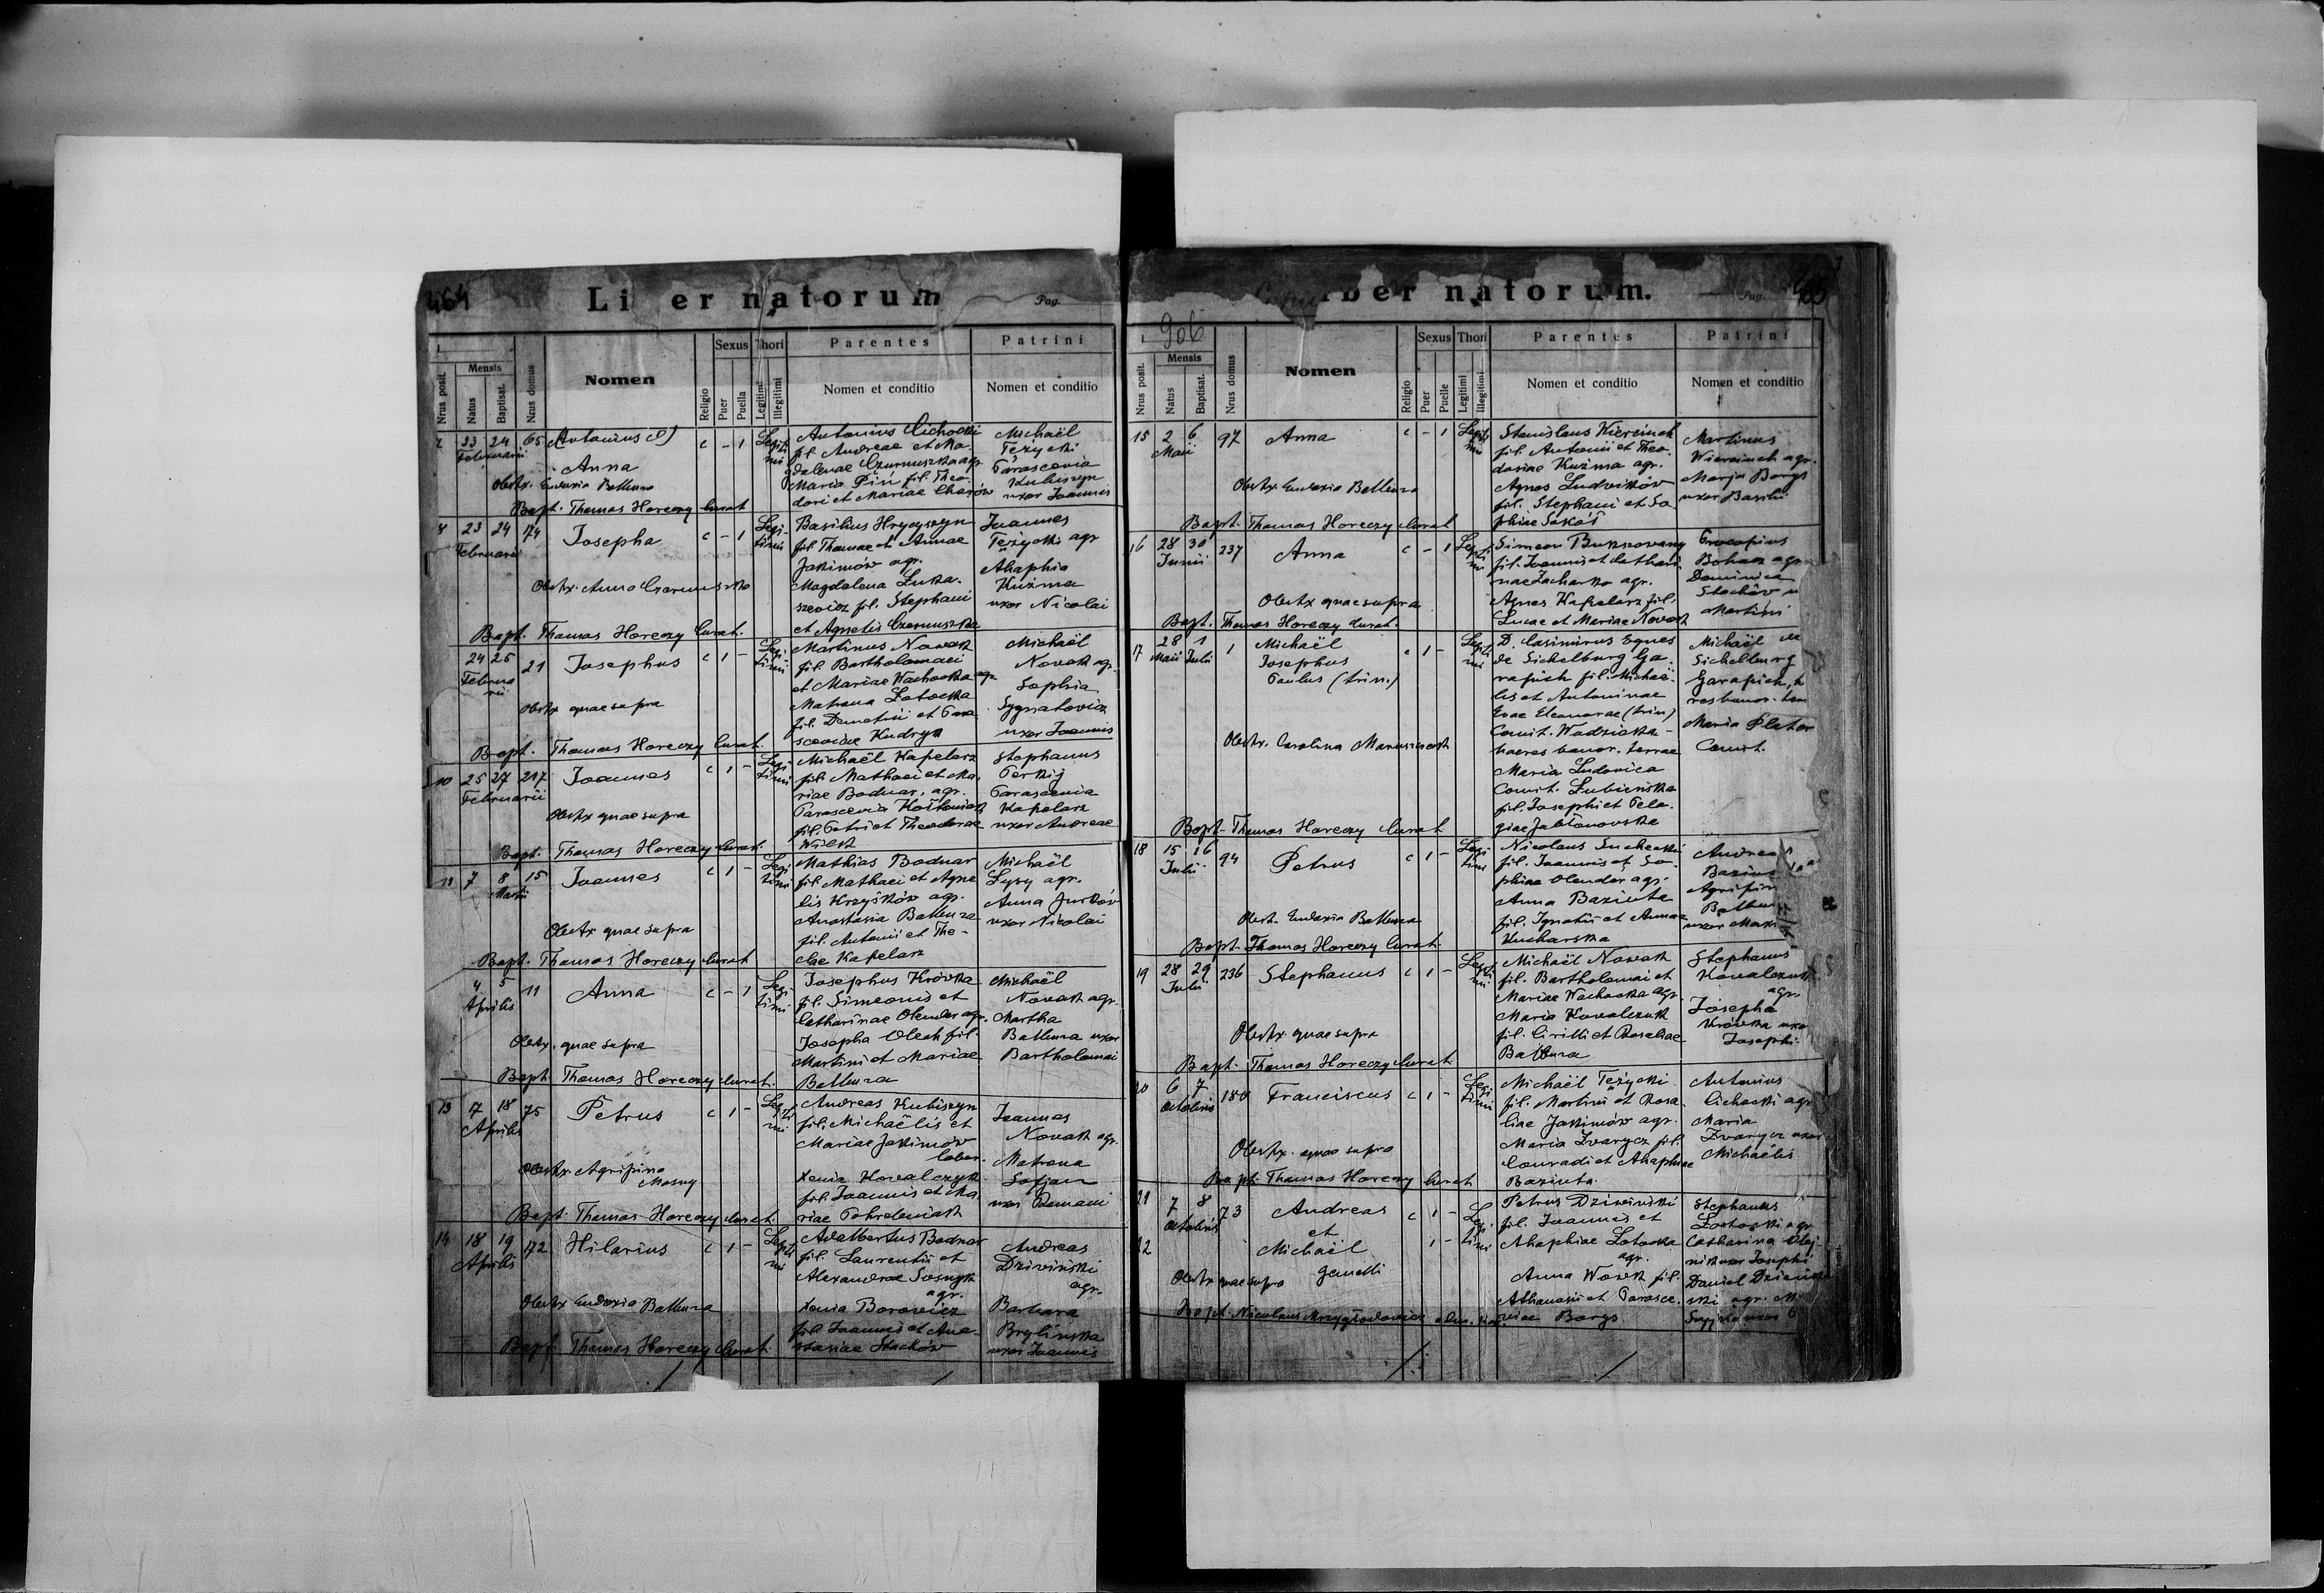 464
Li er natorum
Pag.
Nrus posit.
Mensis
Natus
Baptisat.
Nrus domus
Nomen
Religio
Sexus
Puer
Puella
Thori
Legitimi
Illegitimi
Parentes
Nomen et conditio
Patrini
Nomen et conditio
23 24 65
Februarii
Anna
Obstx. Eudoxia Battura
Bapt. Thomas Horeczy Curat
c - 1
Legiti
mi
Antonius Cichocki
fil. Andreae et Ma
gdalenae Czarnuszka agr.
Maria Piń fil. Theo
dori et Mariae
Michaël
Tężycki
Parascevia
Kubiszyn
uxor Joannis
23 24 174
Februarii
Josepha
Obstx. Anna Czarnuszka
Bapt. Thomas Horeczy Curat.
c - 1
Legi
timi
Basilius Hrycyszyn
fil. Thomae et Annae
Jakimów agr.
Magdalena Łuka
szewicz fil. Stephani
et Agnetis Czarnuszka
Joannes
Tężycki agr
Ahaphia
Kuźma
uxor Nicolai
24 25 21
Februa
rii
Josephus
Obstx quae supra
Bapt. Thomas Horeczy Curat.
c 1 -
Legi
timi
Martinus Nowak
fil. Bartholomaei
et Mariae Wachocka agr
Matrona Łotocka
fil. Demetrii et Para
sceviae Kudryk
Michaël
Nowak agr.
Sophia
Sygnatowicz
uxor Joannis
10 25 27 217
Februarii
Joannes
Obstx quae supra
Bapt. Thomas Horeczy Curat.
c 1 -
Legi
timi
Michaël Kapelarz
fil. Mathaei et Ma
riae Bodnar, agr.
Parascevia
fil. Petri et Theodorae
Stephanus
Perkij
Parascevia
Kapelarz
uxor Andreae
11 7 8 15
Martii
Joannes
Obstx quae supra
Bapt. Thomas Horeczy Curat
c 1 -
Legi
timi
Mathias Bodnar
fil. Mathaei et Agne
tis Krzyśków agr.
Anastasia Battura
fil. Antonii et The-
clae Kapelarz
Michaël
Łysy agr.
Anna Jurków
uxor Nicolai
4 5 11
Aprilis
Anna
Obstx. quae supra
Bapt. Thomas Horeczy Curat.
c - 1
Legi
timi
Josephus Krówka
fil. Simeonis et
Catharinae Olender agr.
Josepha Olech fil.
Martini et Mariae
Battura
Michaël
Nowak agr.
Martha
Battura uxor
Bartholomaei
13 17 18 75
Aprilis
Petrus
Obstx. Agripina
Mosny
Bapt. Thomas Horeczy Curat.
c 1 -
Legiti
mi
Andreas Kubiszyn
fil. Michaëlis et
Mariae Jakimów
labor.
Xenia Kowalczyk
fil. Joannis et Ma
riae Pohrebniak
Joannes
Nowak agr.
Matrona
Sofjan
uxor Damiani
14 18 19 172
Aprilis
Hilarius
Obstx Eudoxia Battura
Bapt. Thomas Horeczy Curat.
c 1 -
Legiti
mi
Adalbertus Bodnar
fil. Laurentii et
Alexandrae Sosnyk
agr.
Xenia Borowicz
fil. Joannis et Ana
stasiae Stachów
Andreas
Dziwiński
agr.
Barbara
Brylińska
uxor Joannis
ber natorum.
Pag. 465
906
Nrus posit.
Mensis
Natus
Baptisat.
Nrus domus
Nomen
Religio
Sexus
Puer
Puelle
Thori
Legitimi
Illegitimi
Parentes
Nomen et conditio
Patrini
Nomen et conditio
15 2 6 97
Maii
Anna
Obstx. Eudoxia Battura
Bapt. Thomas Horeczy Curat
c - 1
Legiti
mi
Stanislaus Wiercinek
fil. Antonii et Theo
dosiae Kuźma agr.
Agnes Ludwików
fil. Stephani et So
phiae Sakóś
Martinus
Wiercinek agr.
Marja Borys
uxor Basilii
16 28 30 237
Junii
Anna
Obstx quae supra
Bapt. Thomas Horeczy Curat.
c - 1
Legiti
mi
Simeon Bukszowany
fil. Joannis et Cathari
nae Zacharko agr.
Agnes Kapelarz fil.
Lucae et Mariae Nowak
Procopius
Bohacz agr
Dominica
Stachów u
Martini
17 28 1 1
Maii Julii
Michaël
Josephus
Paulus (trin.)
Obstx. Carolina Maruszczak
Bapt. Thomas Horeczy Curat
c 1 -
Legiti
mi
D. Casimirus Eques
de Sichelburg Ga
rapich fil. Michaë
lis et Antoninae
Evae Eleonorae (trin)
Comit. Wodzicka -
haeres bonor. terrae
Maria Ludovica
Comit. Łubieńska
fil. Josephi et Pela
giae Jabłonowska
Michaël de
Sichelburg
Garapich, h
res bonor. terr
Maria Plater
Comit.
18 15 16 94
Julii
Petrus
Obstx. Eudoxia Battura
Bapt. Thomas Horeczy Curat.
c 1 -
Legi
timi
Nicolaus Suchecki
fil. Joannis et So
phiae Olender agr.
Anna Baziuta
fil. Ignatii et Annae
Kucharska
Andreas
Agripin
Battur
uxor
19 28 29 236
Julii
Stephanus
Obstx. quae supra
Bapt. Thomas Horeczy Curat
c 1 -
Legiti
mi
Michaël Nowak
fil. Bartholomaei et
Mariae Wachocka agr.
Maria Kowalczuk
fil. Cirilli et Rosaliae
Battura
Stephanus
Kowalczuk
agr.
Josepha
Krówka uxor
Josephi
20 6 7 180
Octobris
Franciscus
Obstx. quae supra
Bapt. Thomas Horeczy Curat
c 1 -
Legi
timi
Michaël Tężycki
fil. Martini et Rosa
liae Jakimów agr.
Maria Zwarycz fil.
Conradi et Ahaphiae
Baziuta
Antonius
Cichocki agr
Maria
Zwarycz uxor
Michaëlis
21 7 8 73
Octobris
Andreas
et
22
Michaël
gemelli
Obstx quae supra
Bapt. Nicolaus Mrzygłodowicz
c 1 -
1 -
Legi
timi
Petrus Dziwiński
fil. Joannis et
Ahaphiae Łotocka
agr.
Anna Wowk fil.
Athanasii et Parasce
viae Borys
Stephanus
Łotocki agr
Catharina Olej
nik uxor Josephi
Daniel Dziwiń
ski agr. M.